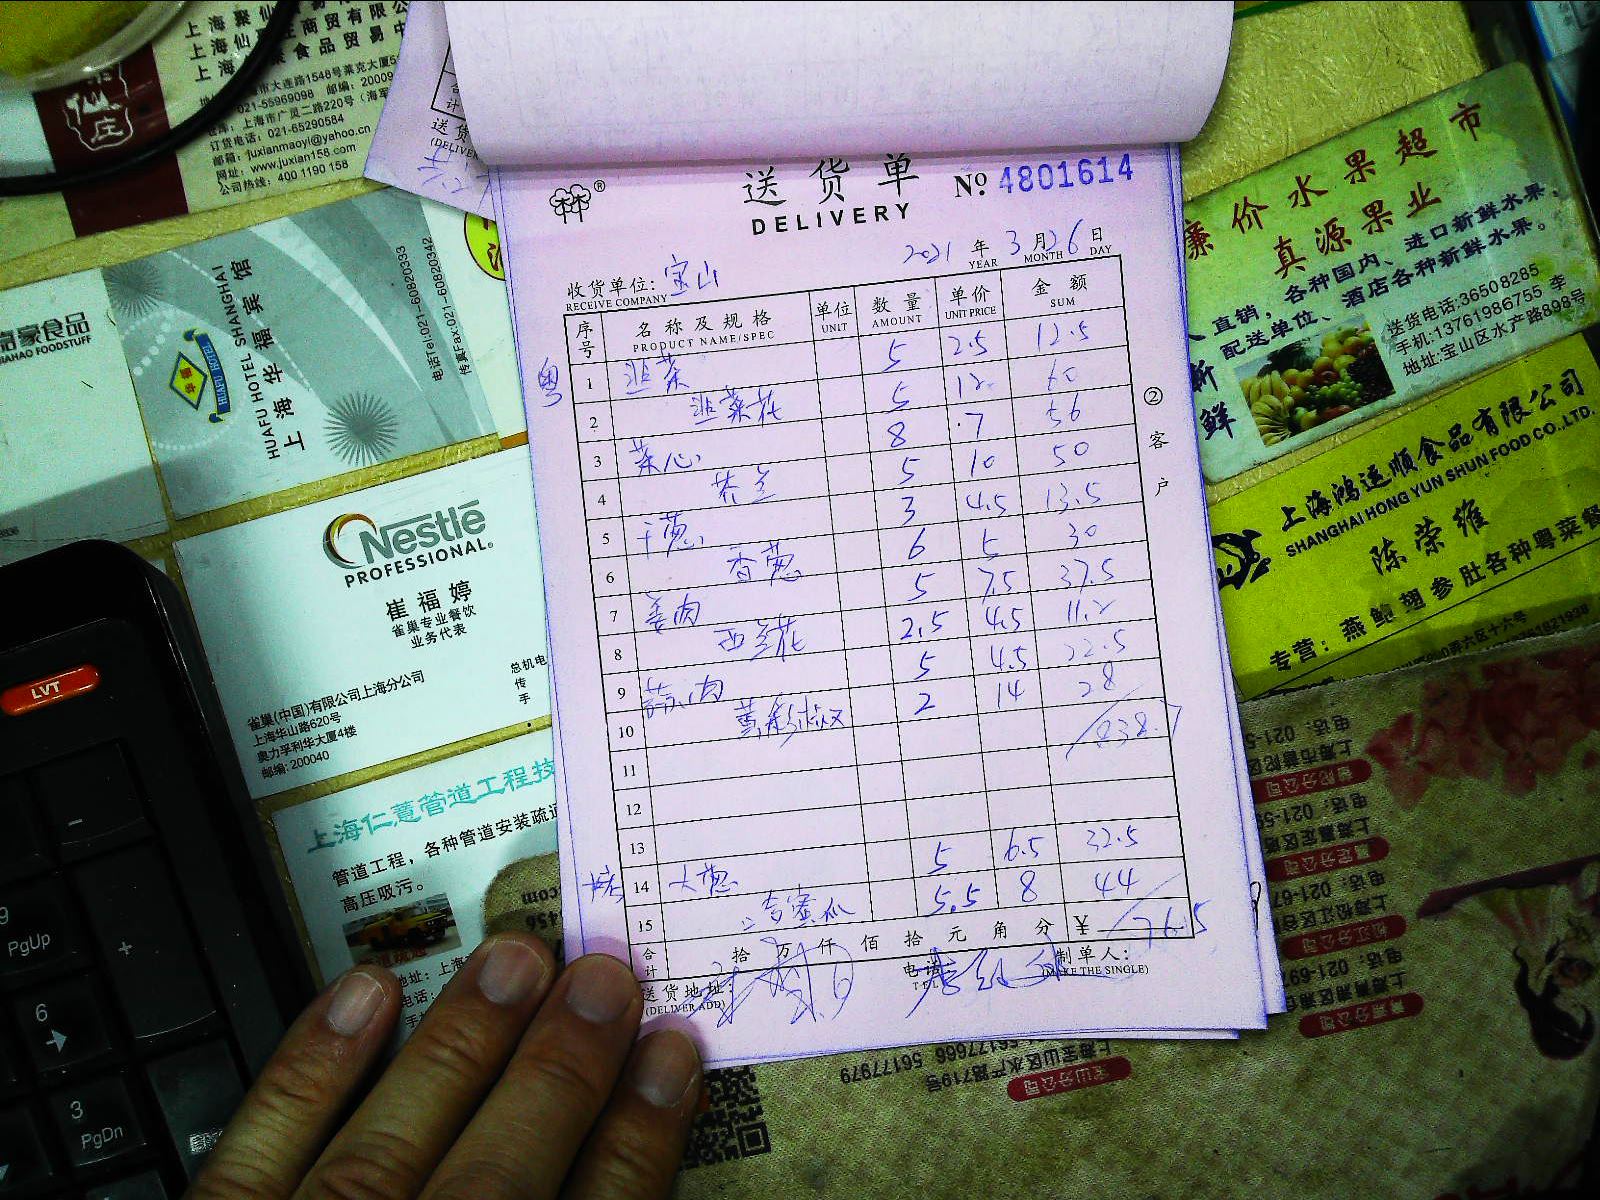 上海聚仙
上海仙 庄商贸有限公
上海 食品贸易中
市大连路1548号莱克大厦5
021-55969098 邮编: 20009
仓库: 上海市广灵二路220号 (海军
订货电话: 021-65290584
邮箱: juxianmaoyi@yahoo.cn
网址: www.juxian158.com
公司热线: 400 1190 158
仙庄
豪食品
JIAHAO FOODSTUFF
华福
HUAFU HOTEL
HUAFU HOTEL SHANGHAI
上海华福宾馆
电话Tel:021-60820333
传真Fax:021-60820342
Nestlé
PROFESSIONAL®
崔福婷
雀巢专业餐饮
业务代表
总机电
传
手
雀巢(中国)有限公司上海分公司
上海华山路620号
奥力孚利华大厦4楼
邮编: 200040
上海仁薏管道工程技
管道工程，各种管道安装疏通
高压吸污。
LVT
9 PgUp
6
3 PgDn
+
-
合计
送货
(DELIVER
®
送货单
DELIVERY
No. 4801614
2021 年 YEAR 3 月 MONTH 26 日 DAY
收货单位: 宝山
RECEIVE COMPANY
序号 名称及规格 PRODUCT NAME/SPEC 单位 UNIT 数量 AMOUNT 单价 UNIT PRICE 金额 SUM
粤
1 韭菜 5 2.5 12.5
2 韭菜花 5 12 60
3 菜心 8 7 56
4 芥兰 5 10 50
5 干葱 3 4.5 13.5
6 香葱 6 5 30
7 姜肉 5 7.5 37.5
8 西兰花 2.5 4.5 11.2
9 蒜肉 5 4.5 22.5
10 黄彩椒 2 14 28
11
12
13
14 大葱 5 6.5 32.5
15 吉蜜瓜 5.5 8 44
合计 拾 万 仟 佰 拾 元 角 分 ¥ 76.5
送货地址:
(DELIVER ADD)
电话
TEL
制单人:
(MAKE THE SINGLE)
② 客户
廉价水果超市
真源果业
直销，各种国内、进口新鲜水果，
配送单位、酒店各种新鲜水果。
新鲜
送货电话:36508285
手机:13761986755 李
地址:宝山区水产路898号
上海鸿运顺食品有限公司
SHANGHAI HONG YUN SHUN FOOD CO.,LTD.
陈荣维
专营: 燕鲍翅参肚各种粤菜餐
56177666 56177979
上海宝山区水产路719号
宝山分公司